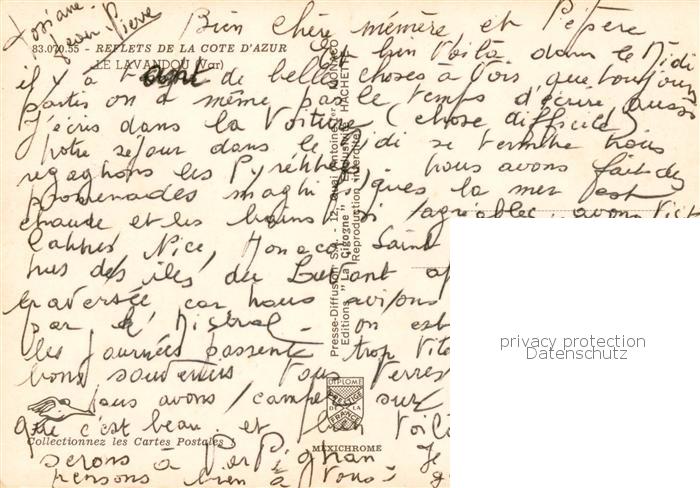 Josiane - Jean Pierre
Bien chère mémère et Pépère
83.070.55 - REFLETS DE LA COTE D'AZUR
LE LAVANDOU (Var)
Eh bien voilà dans le Midi
il y à tant de belles choses à voir que toujours
partis on a même pas le temps d'écrire aussi
J'écris dans la voiture (chose difficile)
Notre sejour dans le Midi se termine nous
regagnons les Pyrénnées. nous avons fait des
promenades magnifiques la mer est
chaude et les bains si agréables avons
Cannes, Nice, Monaco, Saint
des îles du Levant
traversée car nous avions
par le Mistral - on est
les journées passent trop
bons souvenirs vous verrez
nous avons campé sur
que c'est beau. et bien voilà
Collectionnez les Cartes Postales !
serons à Perpignan Je
pensons bien à vous
Presse-Diffusion S.A. - 12, Quai Antoine 1er - MONACO
Editions "La Cigogne" - Exclusivité HACHETTE
Reproduction interdite
DIPLOME
PRESTIGE
DE LA
FRANCE
MEXICHROME
privacy protection
Datenschutz